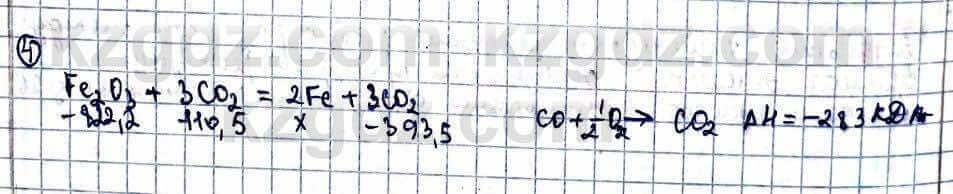 kzgdz.com kzgdz.com
④
Fe₂O₃ + 3CO₂ = 2Fe + 3CO₂
-822,2 110,5 x -393,5 CO + ½O₂ → CO₂ ΔH = -283 кДж